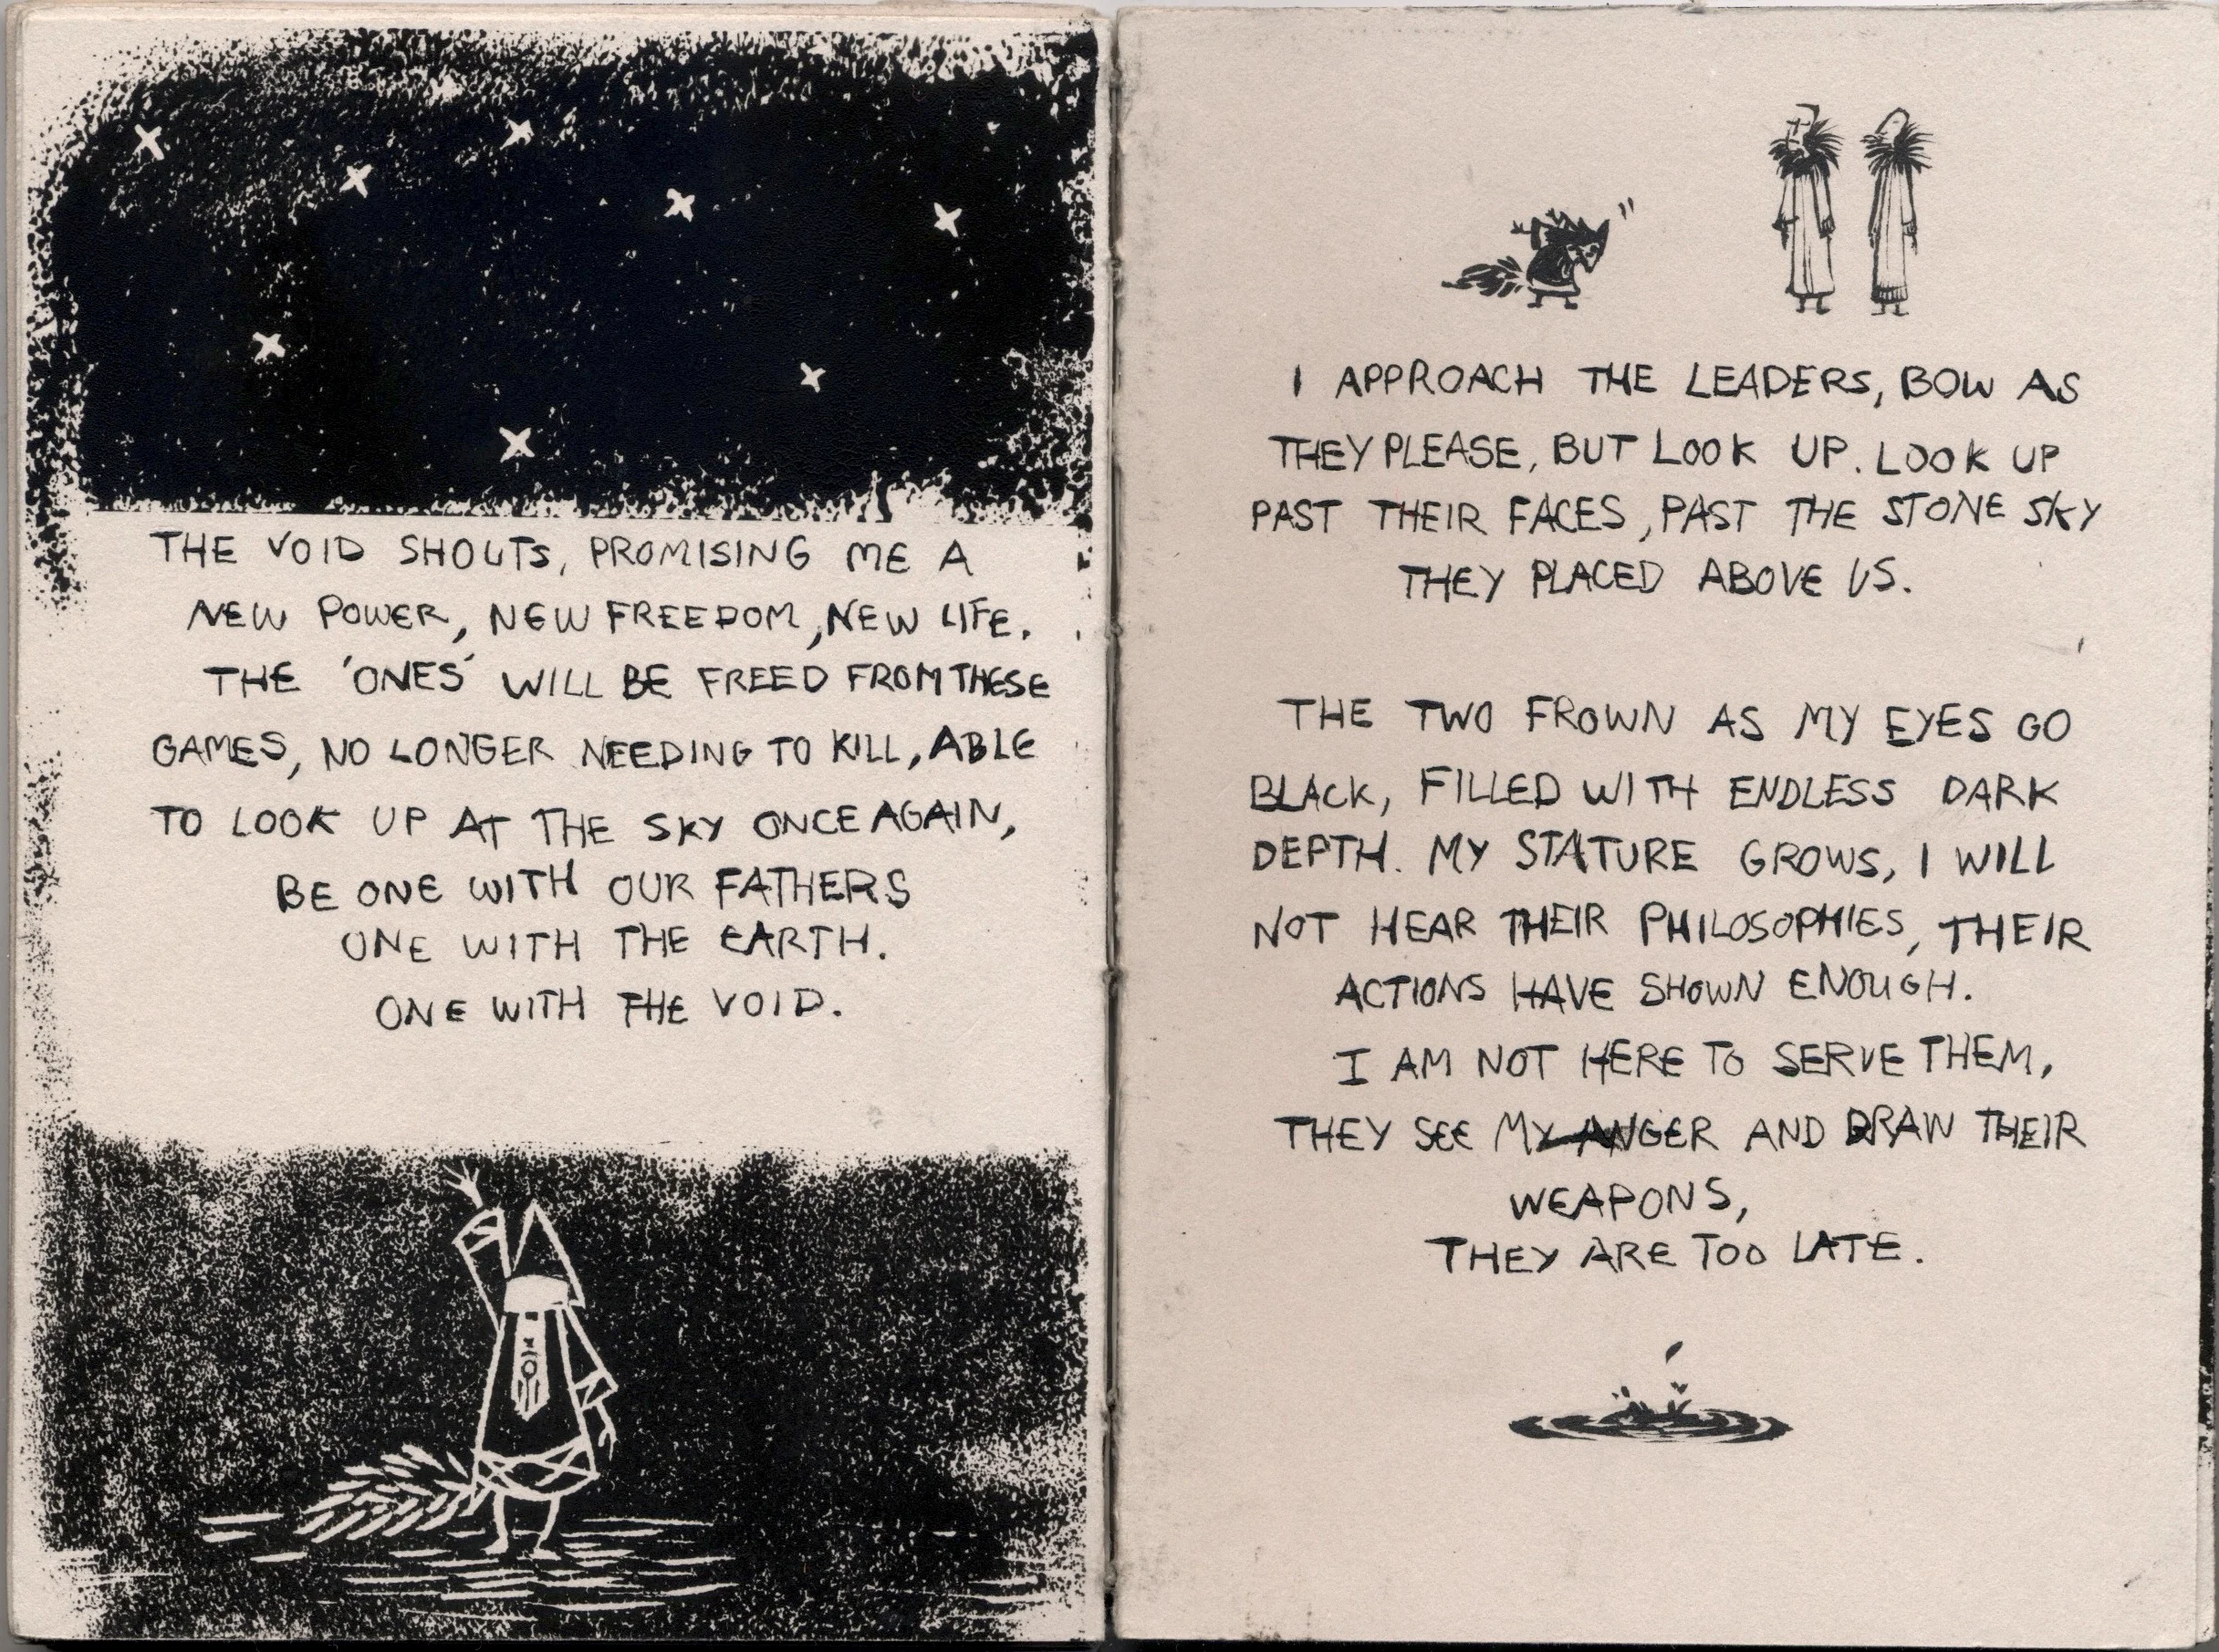 THE VOID SHOUTS, PROMISING ME A
NEW POWER, NEW FREEDOM, NEW LIFE.
THE 'ONES' WILL BE FREED FROM THESE
GAMES, NO LONGER NEEDING TO KILL, ABLE
TO LOOK UP AT THE SKY ONCE AGAIN,
BE ONE WITH OUR FATHERS
ONE WITH THE EARTH.
ONE WITH THE VOID.
I APPROACH THE LEADERS, BOW AS
THEY PLEASE, BUT LOOK UP. LOOK UP
PAST THEIR FACES, PAST THE STONE SKY
THEY PLACED ABOVE US.
THE TWO FROWN AS MY EYES GO
BLACK, FILLED WITH ENDLESS DARK
DEPTH. MY STATURE GROWS, I WILL
NOT HEAR THEIR PHILOSOPHIES, THEIR
ACTIONS HAVE SHOWN ENOUGH.
I AM NOT HERE TO SERVE THEM,
THEY SEE MY ANGER AND DRAW THEIR
WEAPONS,
THEY ARE TOO LATE.